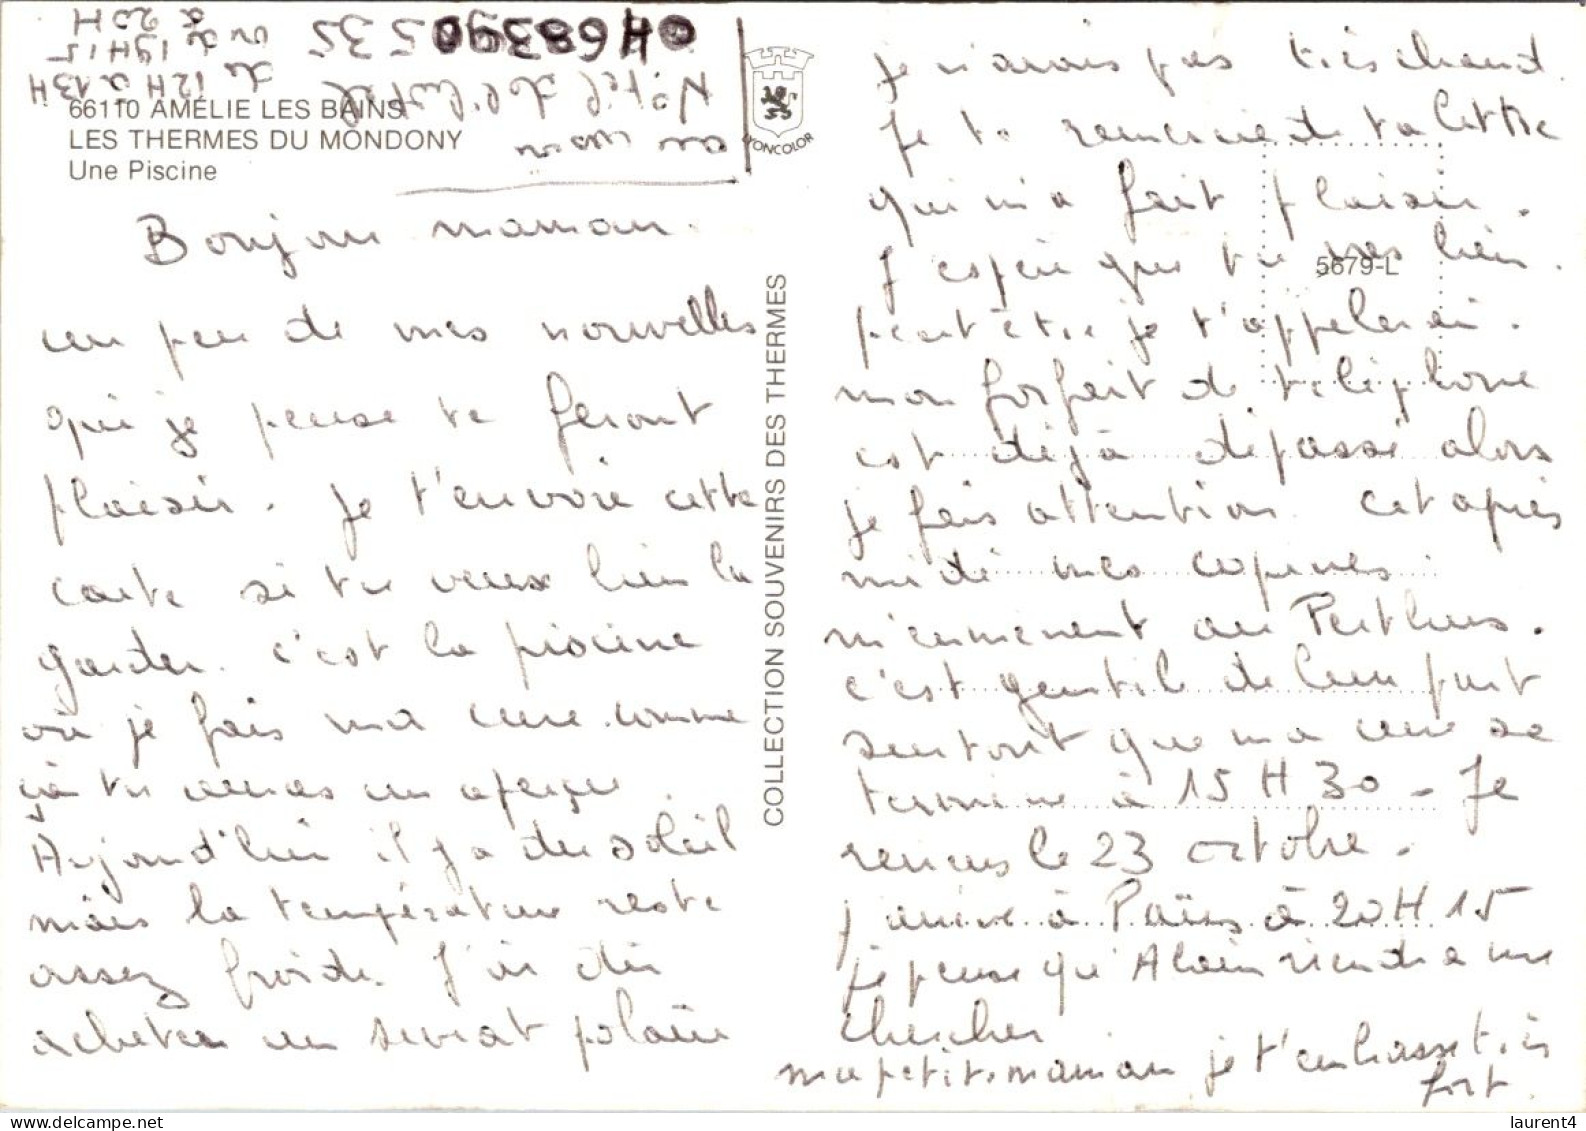 66110 AMÉLIE LES BAINS
LES THERMES DU MONDONY
Une Piscine
Bonjour maman.
un peu de mes nouvelles
qui je pense te feront
plaisir. Je t'envoie cette
carte si tu veux bien la
garder. c'est la piscine
où je fais ma cure. comme
çà tu auras un aperçu.
Aujourd'hui il y a du soleil
mais la température reste
assez froide. J'ai dû
acheter un sweat polaire
COLLECTION SOUVENIRS DES THERMES
LYONCOLOR
5679-L
je n'avais pas très chaud.
Je te remercie de ta lettre
qui m'a fait plaisir.
J'espère que tu vas bien.
peut être je t'appelerai.
mon forfait de téléphone
est déjà dépassé alors
je fais attention. Cet après
midi mes copines
m'emmenent au Perthus.
c'est gentil de leur part
surtout que ma cure se
termine à 15 H 30 - Je
reviens le 23 octobre.
j'arrive à Paris à 20 H 15
je pense qu'Alain viendra me
chercher
ma petite maman je t'embrasse très
fort.
0468390535
Hôtel de
de 12H à 13H
ou de 19H15
à 20H
laurent4